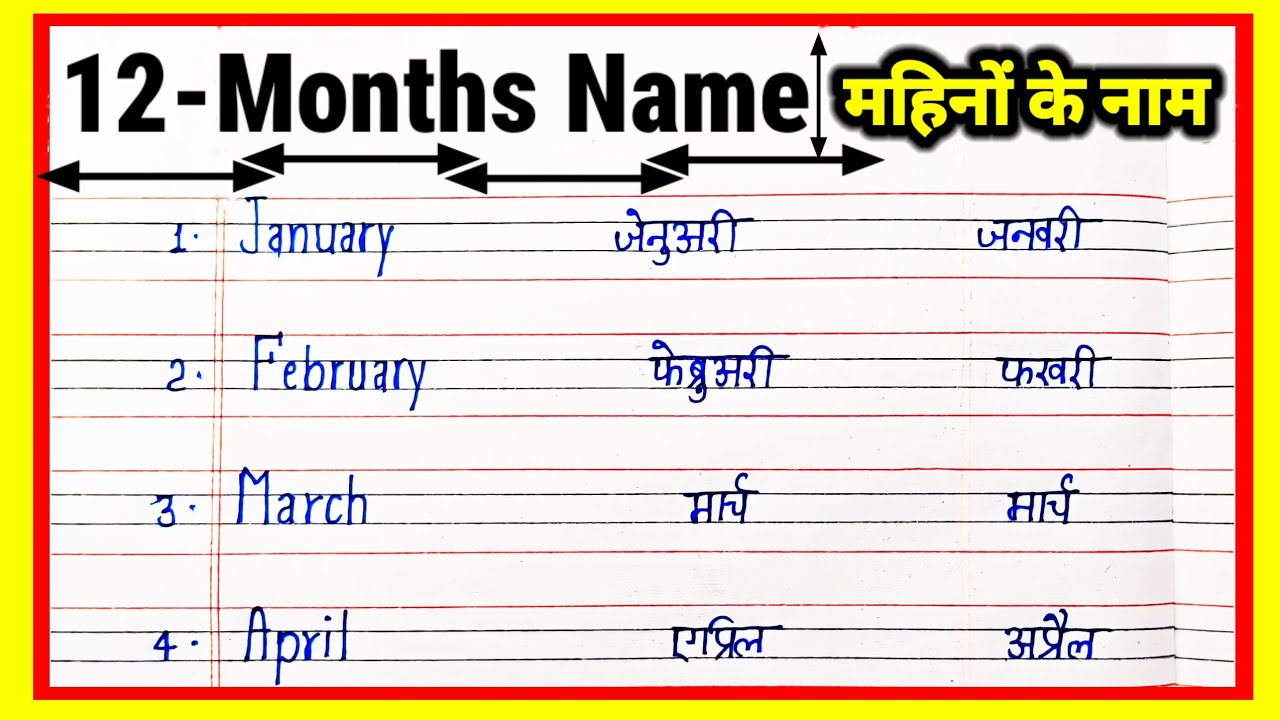 12-Months Name महिनों के नाम
1. January जेनुअरी जनवरी
2. February फेब्रुअरी फरवरी
3. March मार्च मार्च
4. April एप्रिल अप्रैल